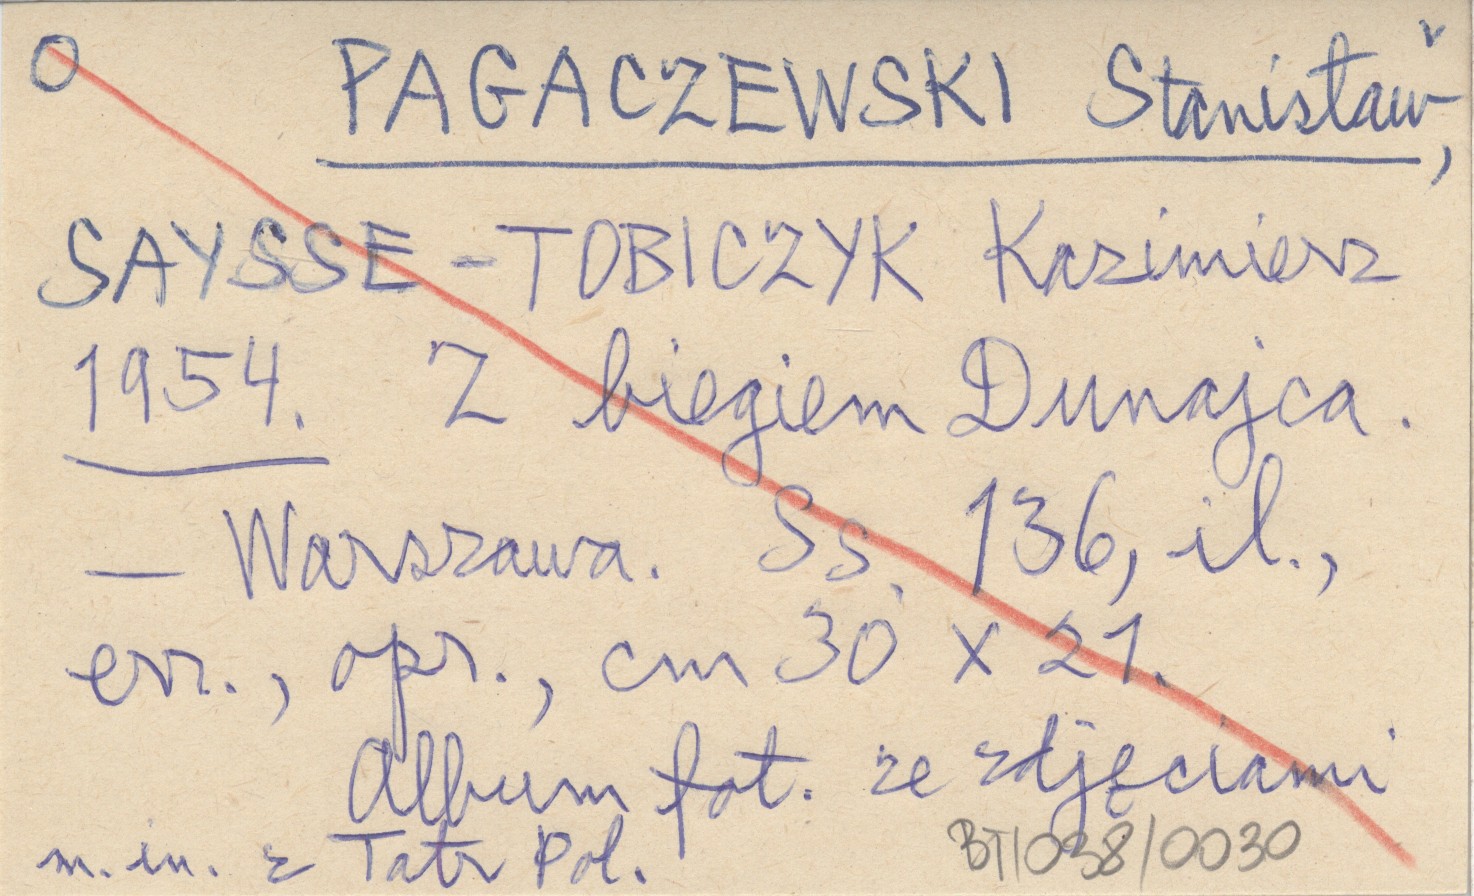 O PAGACZEWSKI Stanisław,
SAYSSE-TOBICZYK Kazimierz
1954. Z biegiem Dunajca.
— Warszawa. Ss. 136, il.,
err., opr., cm 30 x 21.
Album fot. ze zdjęciami
m.in. z Tatr Pol.
BT/038/0030